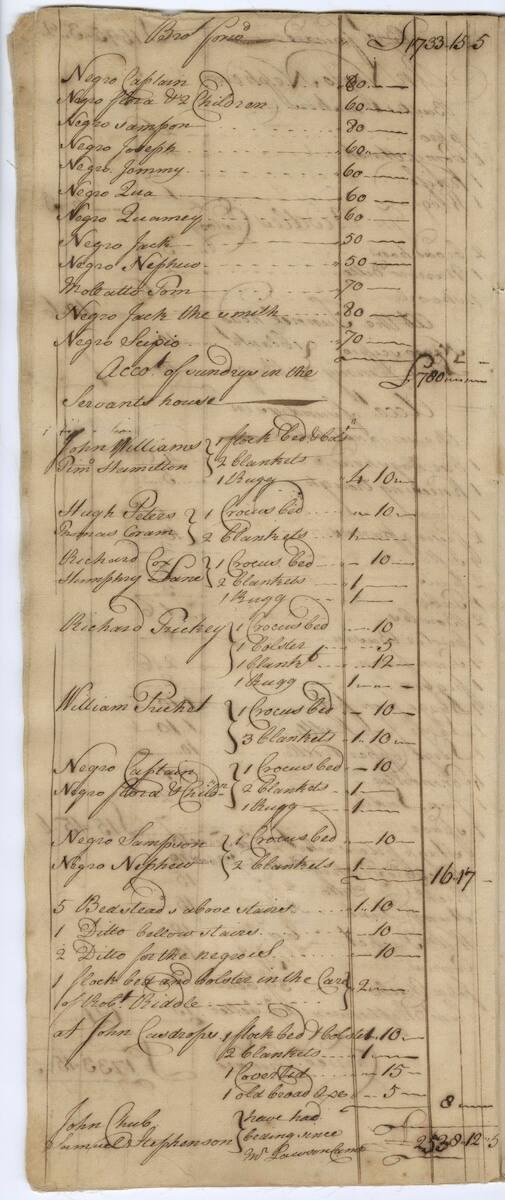 Bro.t forw.d £1733 15 5
Negro Captain 80
Negro flora & 2 Children 60
Negro Sampson 80
Negro Joseph 60
Negro Jommy 60
Negro Qua 60
Negro Quamey 60
Negro Jack 50
Negro Nephew 50
Molatto Tom 70
Negro Jack the smith 80
Negro Scipio 70
£780
Acco.t of sundrys in the
Servants house
John Williams } 1 flock bed & bols.r
Hamilton } 2 blankets
1 Rugg 4 10
Hugh Peters } 1 Crocus bed 10
Thomas Coram } 2 blankets 1
Richard Cox } 1 Crocus bed 10
Humphry Lane } 2 blankets 1
1 Rugg 1
Richard Trickey } 1 Crocus bed 10
1 bolster 5
1 blank.t 12
1 Rugg 1
William Tricket } 1 Crocus bed 10
3 blankets 1 10
Negro Captain } 1 Crocus bed 10
Negro flora & Chil.n } 2 blankets 1
1 Rugg 1
Negro Sampson } 1 Crocus bed 10
Negro Nephew } 2 blankets 1
16 17
5 Bedsteads above stairs 1 10
1 Ditto bellow stairs 10
2 Ditto for the negroes 10
1 flock bed and bolster in the Care } 2
of Rob.t Riddle
at John Cawdrops 1 flock bed & bolster 1 10
2 blankets 1
1 Coverlid 15
1 old broad axe 5
8
John Chub } have had
Samuel Stephenson } beding since
M.r Lawson Came
£2538 12 5